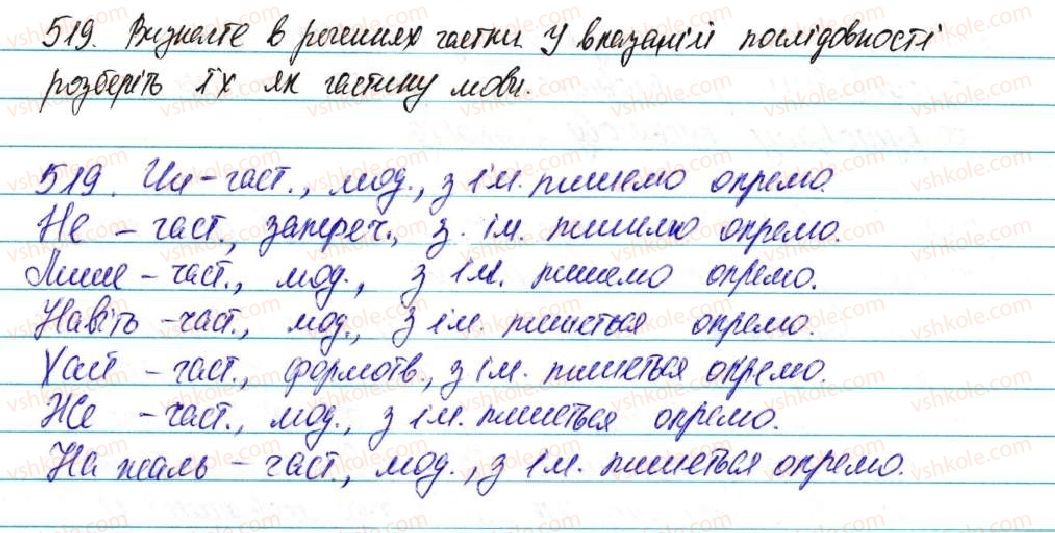 519. Визначте в реченнях частки. У вказаній послідовності
розберіть їх як частину мови.
519. Чи - част., мод., з ім. пишемо окремо.
Не - част., запереч., з. ім. пишемо окремо.
Лише - част., мод., з ім. пишемо окремо.
Навіть - част., мод., з ім. пишеться окремо.
Хай - част., формотв., з ім. пишеться окремо.
Же - част., мод., з ім. пишеться окремо.
На жаль - част., мод., з ім. пишеться окремо.
vshkole.com